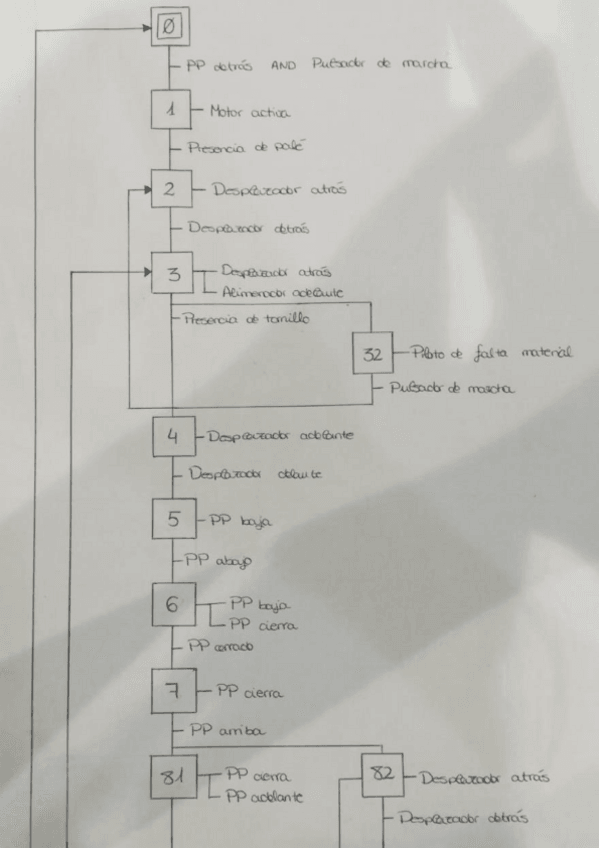 0
PP detrás AND Pulsador de marcha
1 Motor activa
Presencia de palé
2 Desplazador atrás
Desplazador detrás
3 Desplazador atrás
Alimentador adelante
Presencia de tornillo
32 Piloto de falta material
Pulsador de marcha
4 Desplazador adelante
Desplazador delante
5 PP baja
PP abajo
6 PP baja
PP cierra
PP cerrado
7 PP cierra
PP arriba
81 PP cierra
PP adelante
82 Desplazador atrás
Desplazador detrás